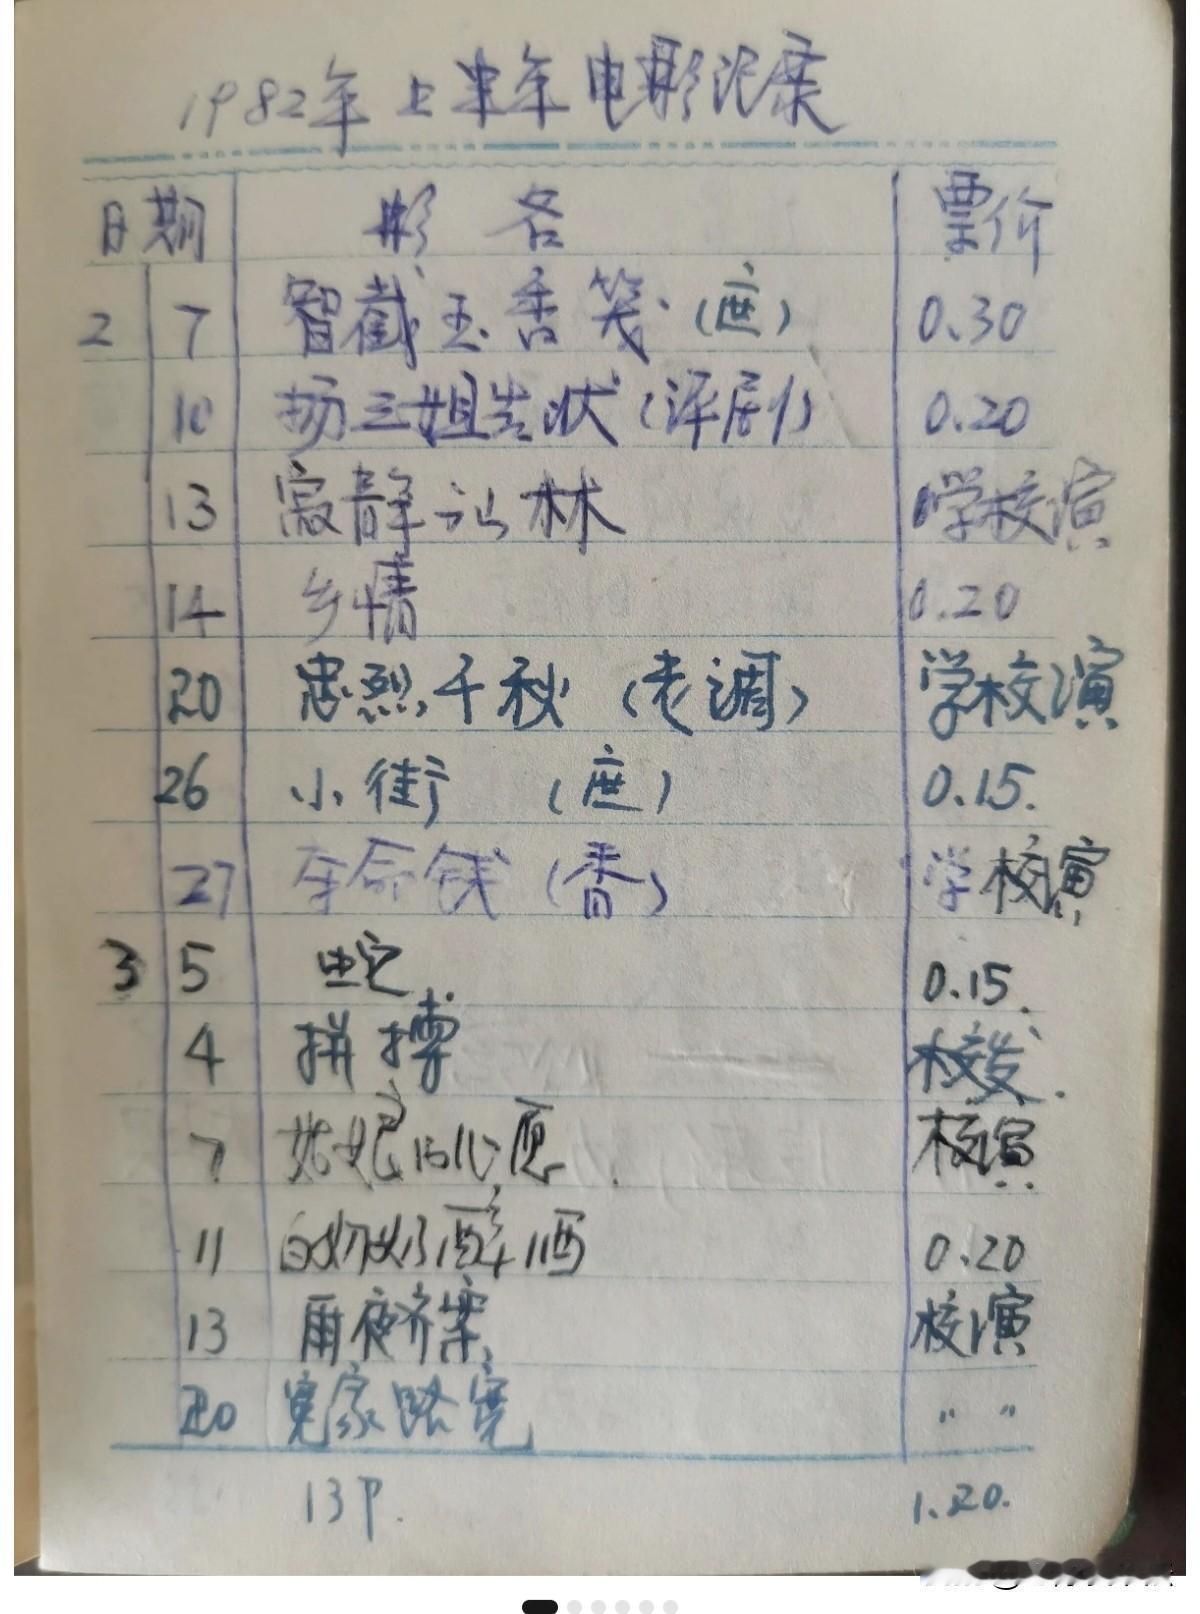 1982年上半年电影记录
日期 影名 票价
2 7 智截玉香笺(庶) 0.30
10 扬三姐告状(评剧) 0.20
13 寂静的林 学校演
14 乡情 0.20
20 忠烈千秋(老调) 学校演
26 小街(庶) 0.15.
27 夺命钱(香) 学校演
3 5 蛇 0.15.
4 拼搏 校发.
7 姑娘的心愿 校演
11 白奶奶醉酒 0.20
13 雨夜奇案 校演
20 冤家路宽 " "
13 1.20.